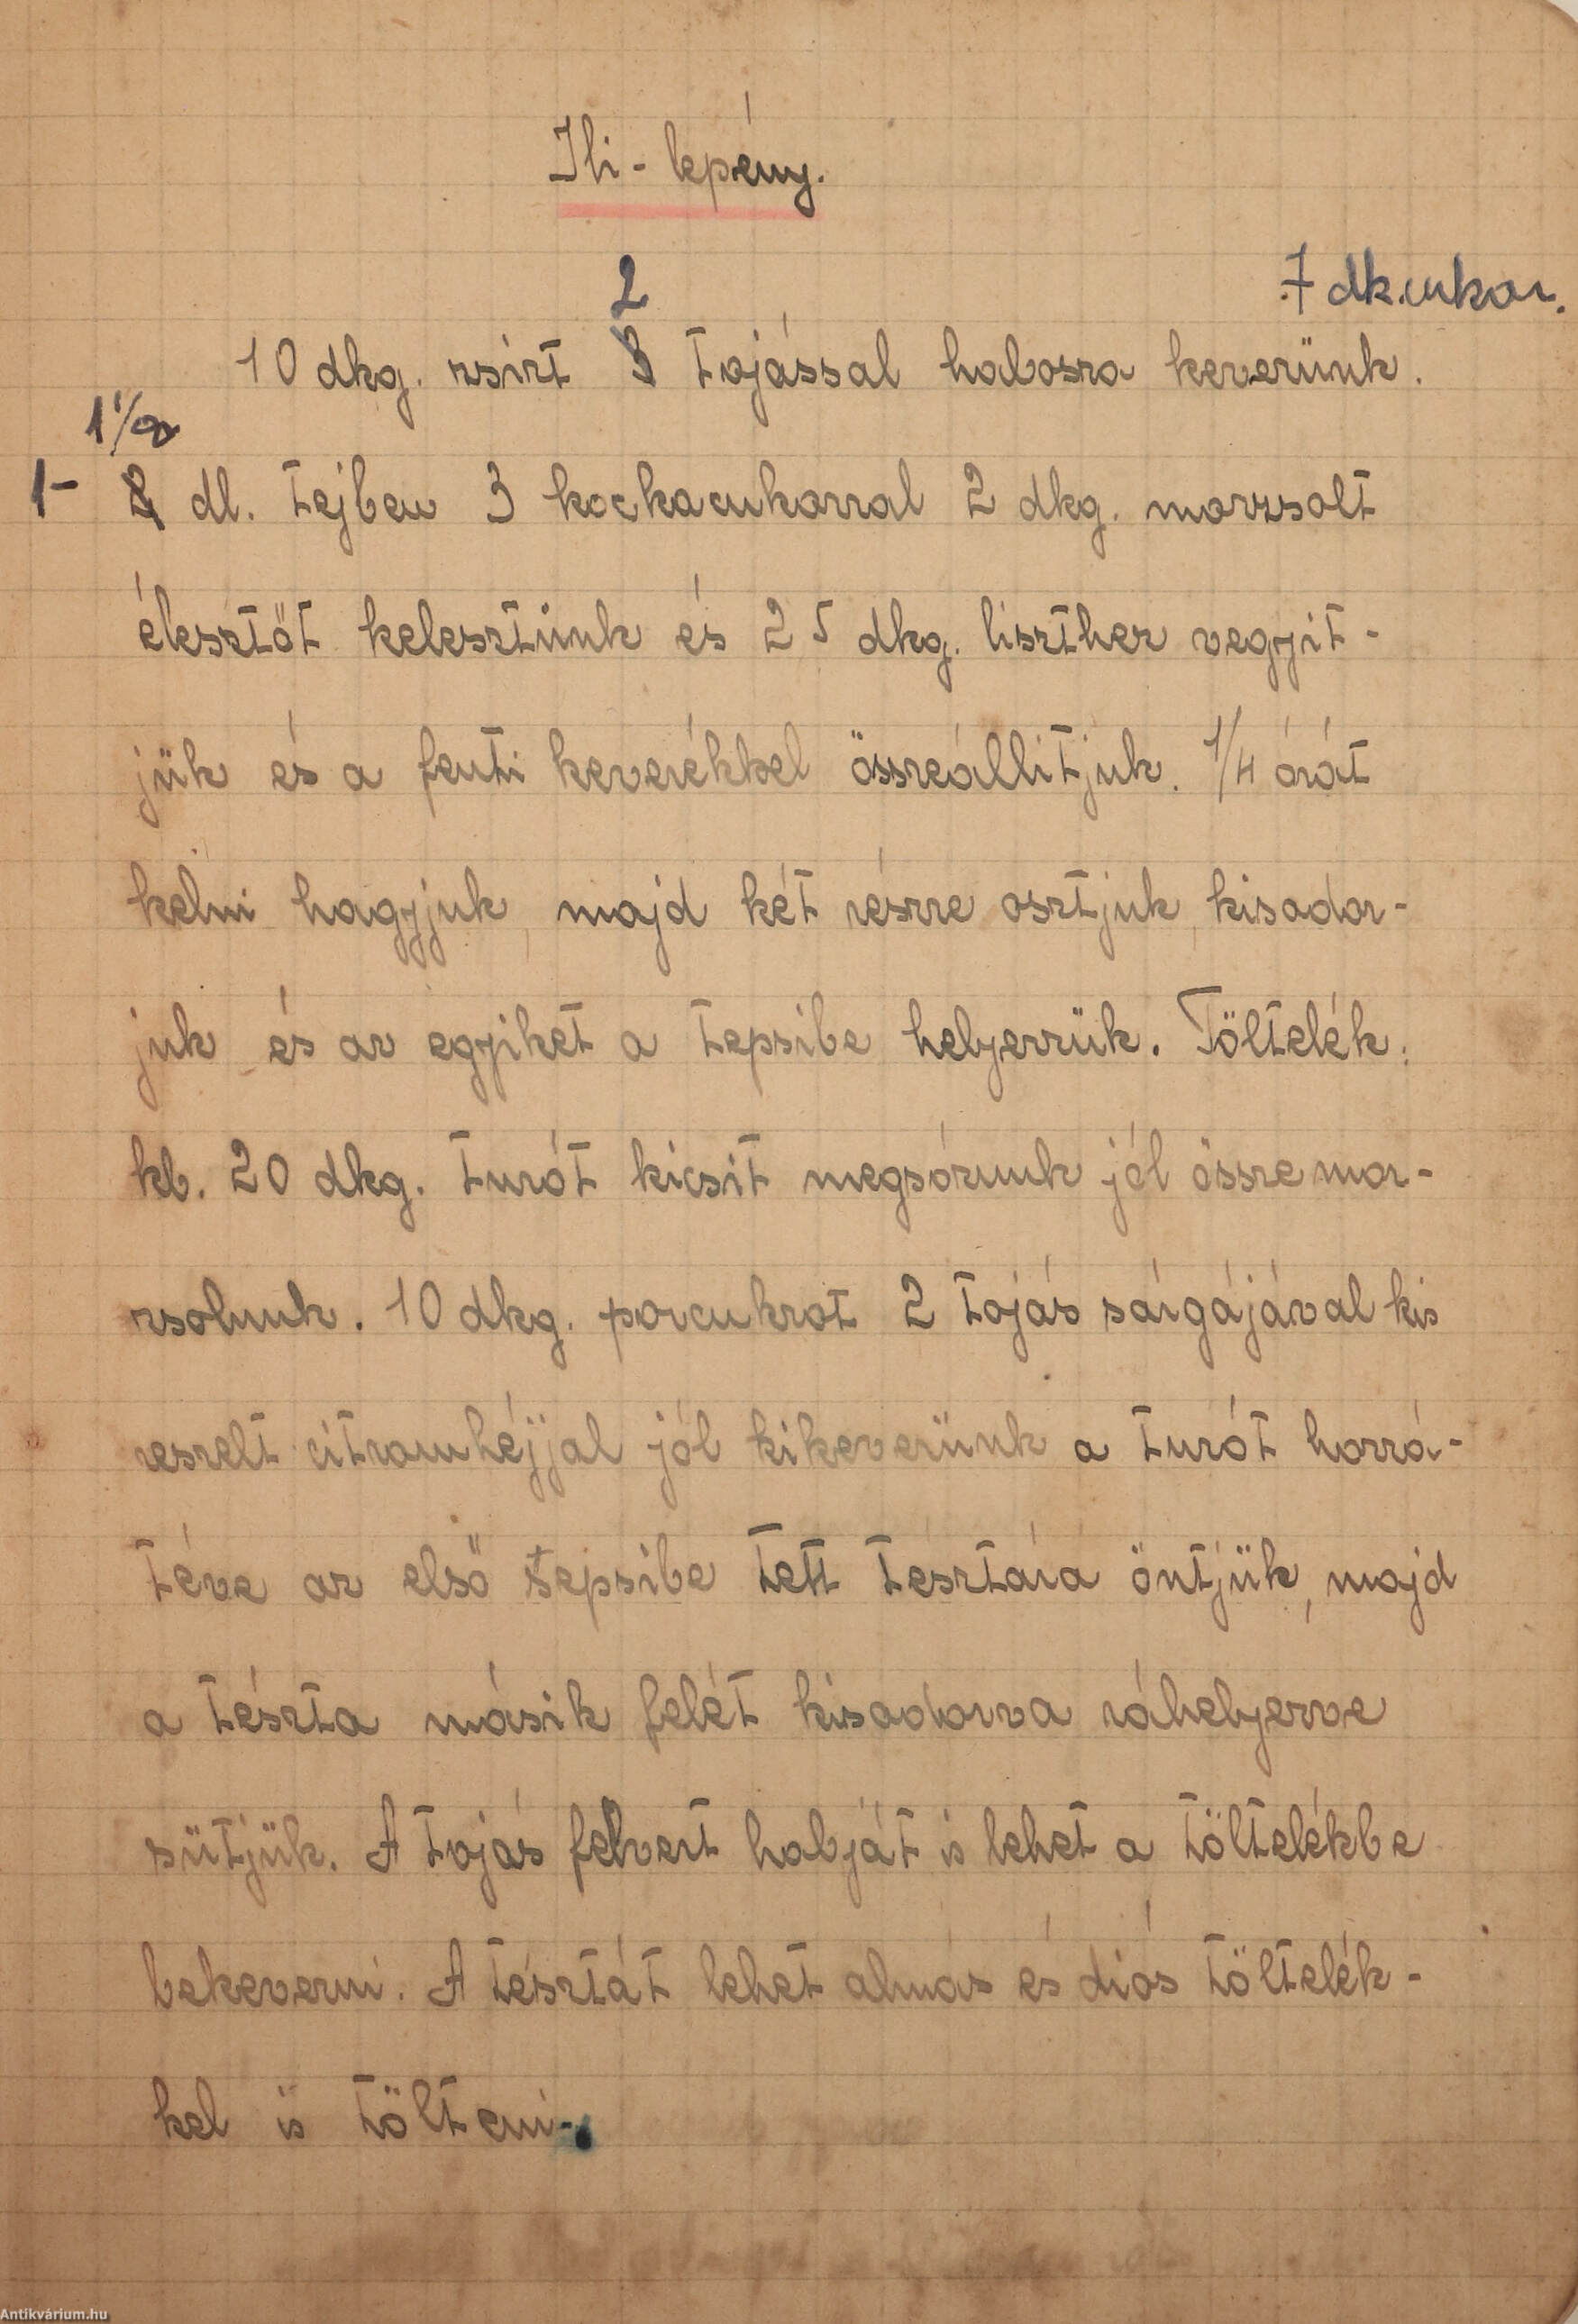 Ili-lepény.
2
7 dk. cukor.
10 dkg. zsirt 3 tojással habosra keverünk.
1 1/2
1- 2 dl. tejben 3 kockacukorral 2 dkg. morzsolt
élesztőt kelesztünk és 25 dkg. liszthez vegyit-
jük és a fenti keverékkel összeállitjuk. 1/4 órát
kelni hagyjuk, majd két részre osztjuk, kisodor-
juk és az egyiket a tepsibe helyezzük. Töltelék:
kb. 20 dkg. turót kicsit megsózunk jól összemor-
zsolunk. 10 dkg. porcukrot 2 tojás sárgájával kis
reszelt citromhéjjal jól kikeverünk a turót hozzá-
téve az első tepsibe tett tésztára öntjük, majd
a tészta másik felét kisodorva ráhelyezve
sütjük. A tojás felvert habját is lehet a töltelékbe
bekeverni. A tésztát lehet almás és diós töltelék-
kel is tölteni-.
Antikvárium.hu